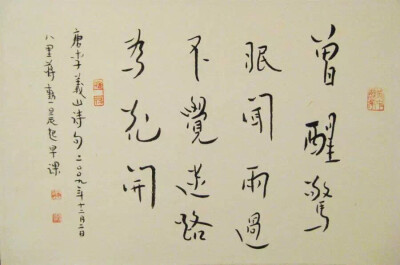 曾醒驚
眠聞雨過
不覺迷路
為花開
唐李義山詩句二〇〇九年十二月二日
八里蔣勳晨起早課